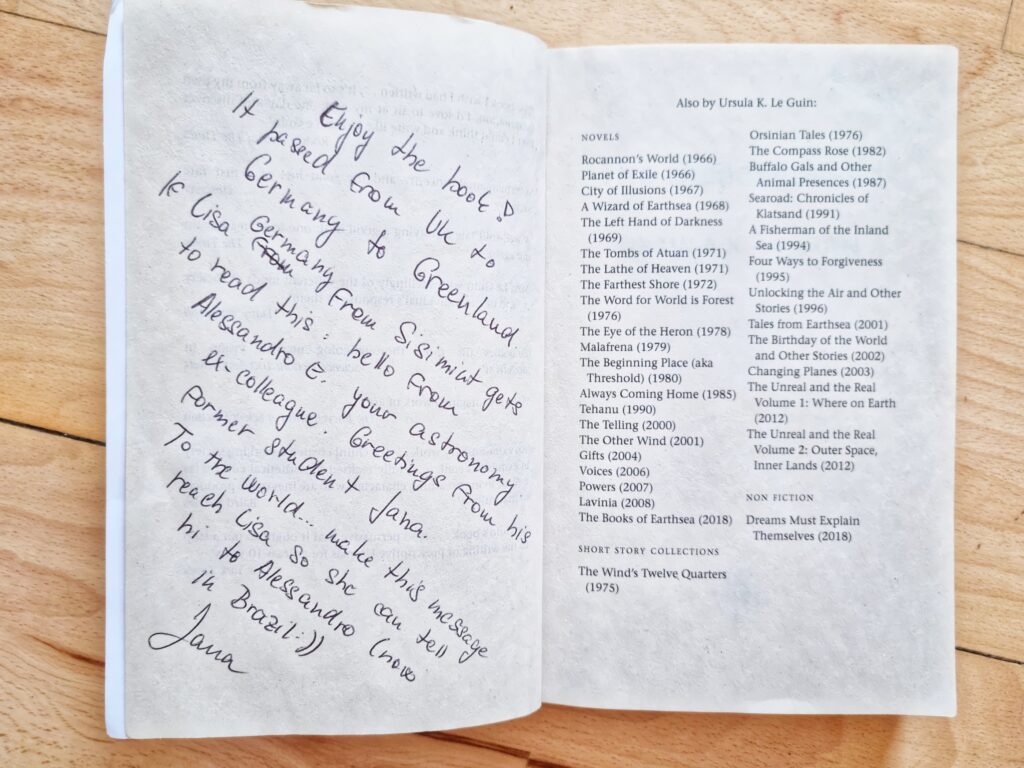 Enjoy the book!
It passed from UK to
Germany to Greenland.
If Lisa Germany from Sisimiut gets
to read this: hello from
Alessandro E. your astronomy
ex-colleague. Greetings from his
former student Jana.
To the world... make this message
reach Lisa so she can tell
hi to Alessandro (now
in Brazil:))
Jana
Also by Ursula K. Le Guin:
NOVELS
Rocannon's World (1966)
Planet of Exile (1966)
City of Illusions (1967)
A Wizard of Earthsea (1968)
The Left Hand of Darkness
(1969)
The Tombs of Atuan (1971)
The Lathe of Heaven (1971)
The Farthest Shore (1972)
The Word for World is Forest
(1976)
The Eye of the Heron (1978)
Malafrena (1979)
The Beginning Place (aka
Threshold) (1980)
Always Coming Home (1985)
Tehanu (1990)
The Telling (2000)
The Other Wind (2001)
Gifts (2004)
Voices (2006)
Powers (2007)
Lavinia (2008)
The Books of Earthsea (2018)
SHORT STORY COLLECTIONS
The Wind's Twelve Quarters
(1975)
Orsinian Tales (1976)
The Compass Rose (1982)
Buffalo Gals and Other
Animal Presences (1987)
Searoad: Chronicles of
Klatsand (1991)
A Fisherman of the Inland
Sea (1994)
Four Ways to Forgiveness
(1995)
Unlocking the Air and Other
Stories (1996)
Tales from Earthsea (2001)
The Birthday of the World
and Other Stories (2002)
Changing Planes (2003)
The Unreal and the Real
Volume 1: Where on Earth
(2012)
The Unreal and the Real
Volume 2: Outer Space,
Inner Lands (2012)
NON FICTION
Dreams Must Explain
Themselves (2018)